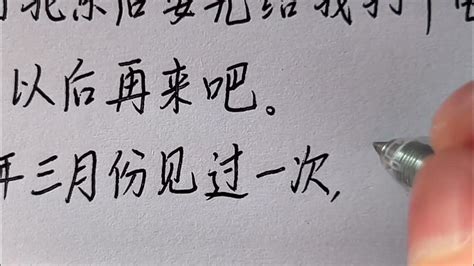 北京后要先给我打个电
以后再来吧。
年三月份见过一次,